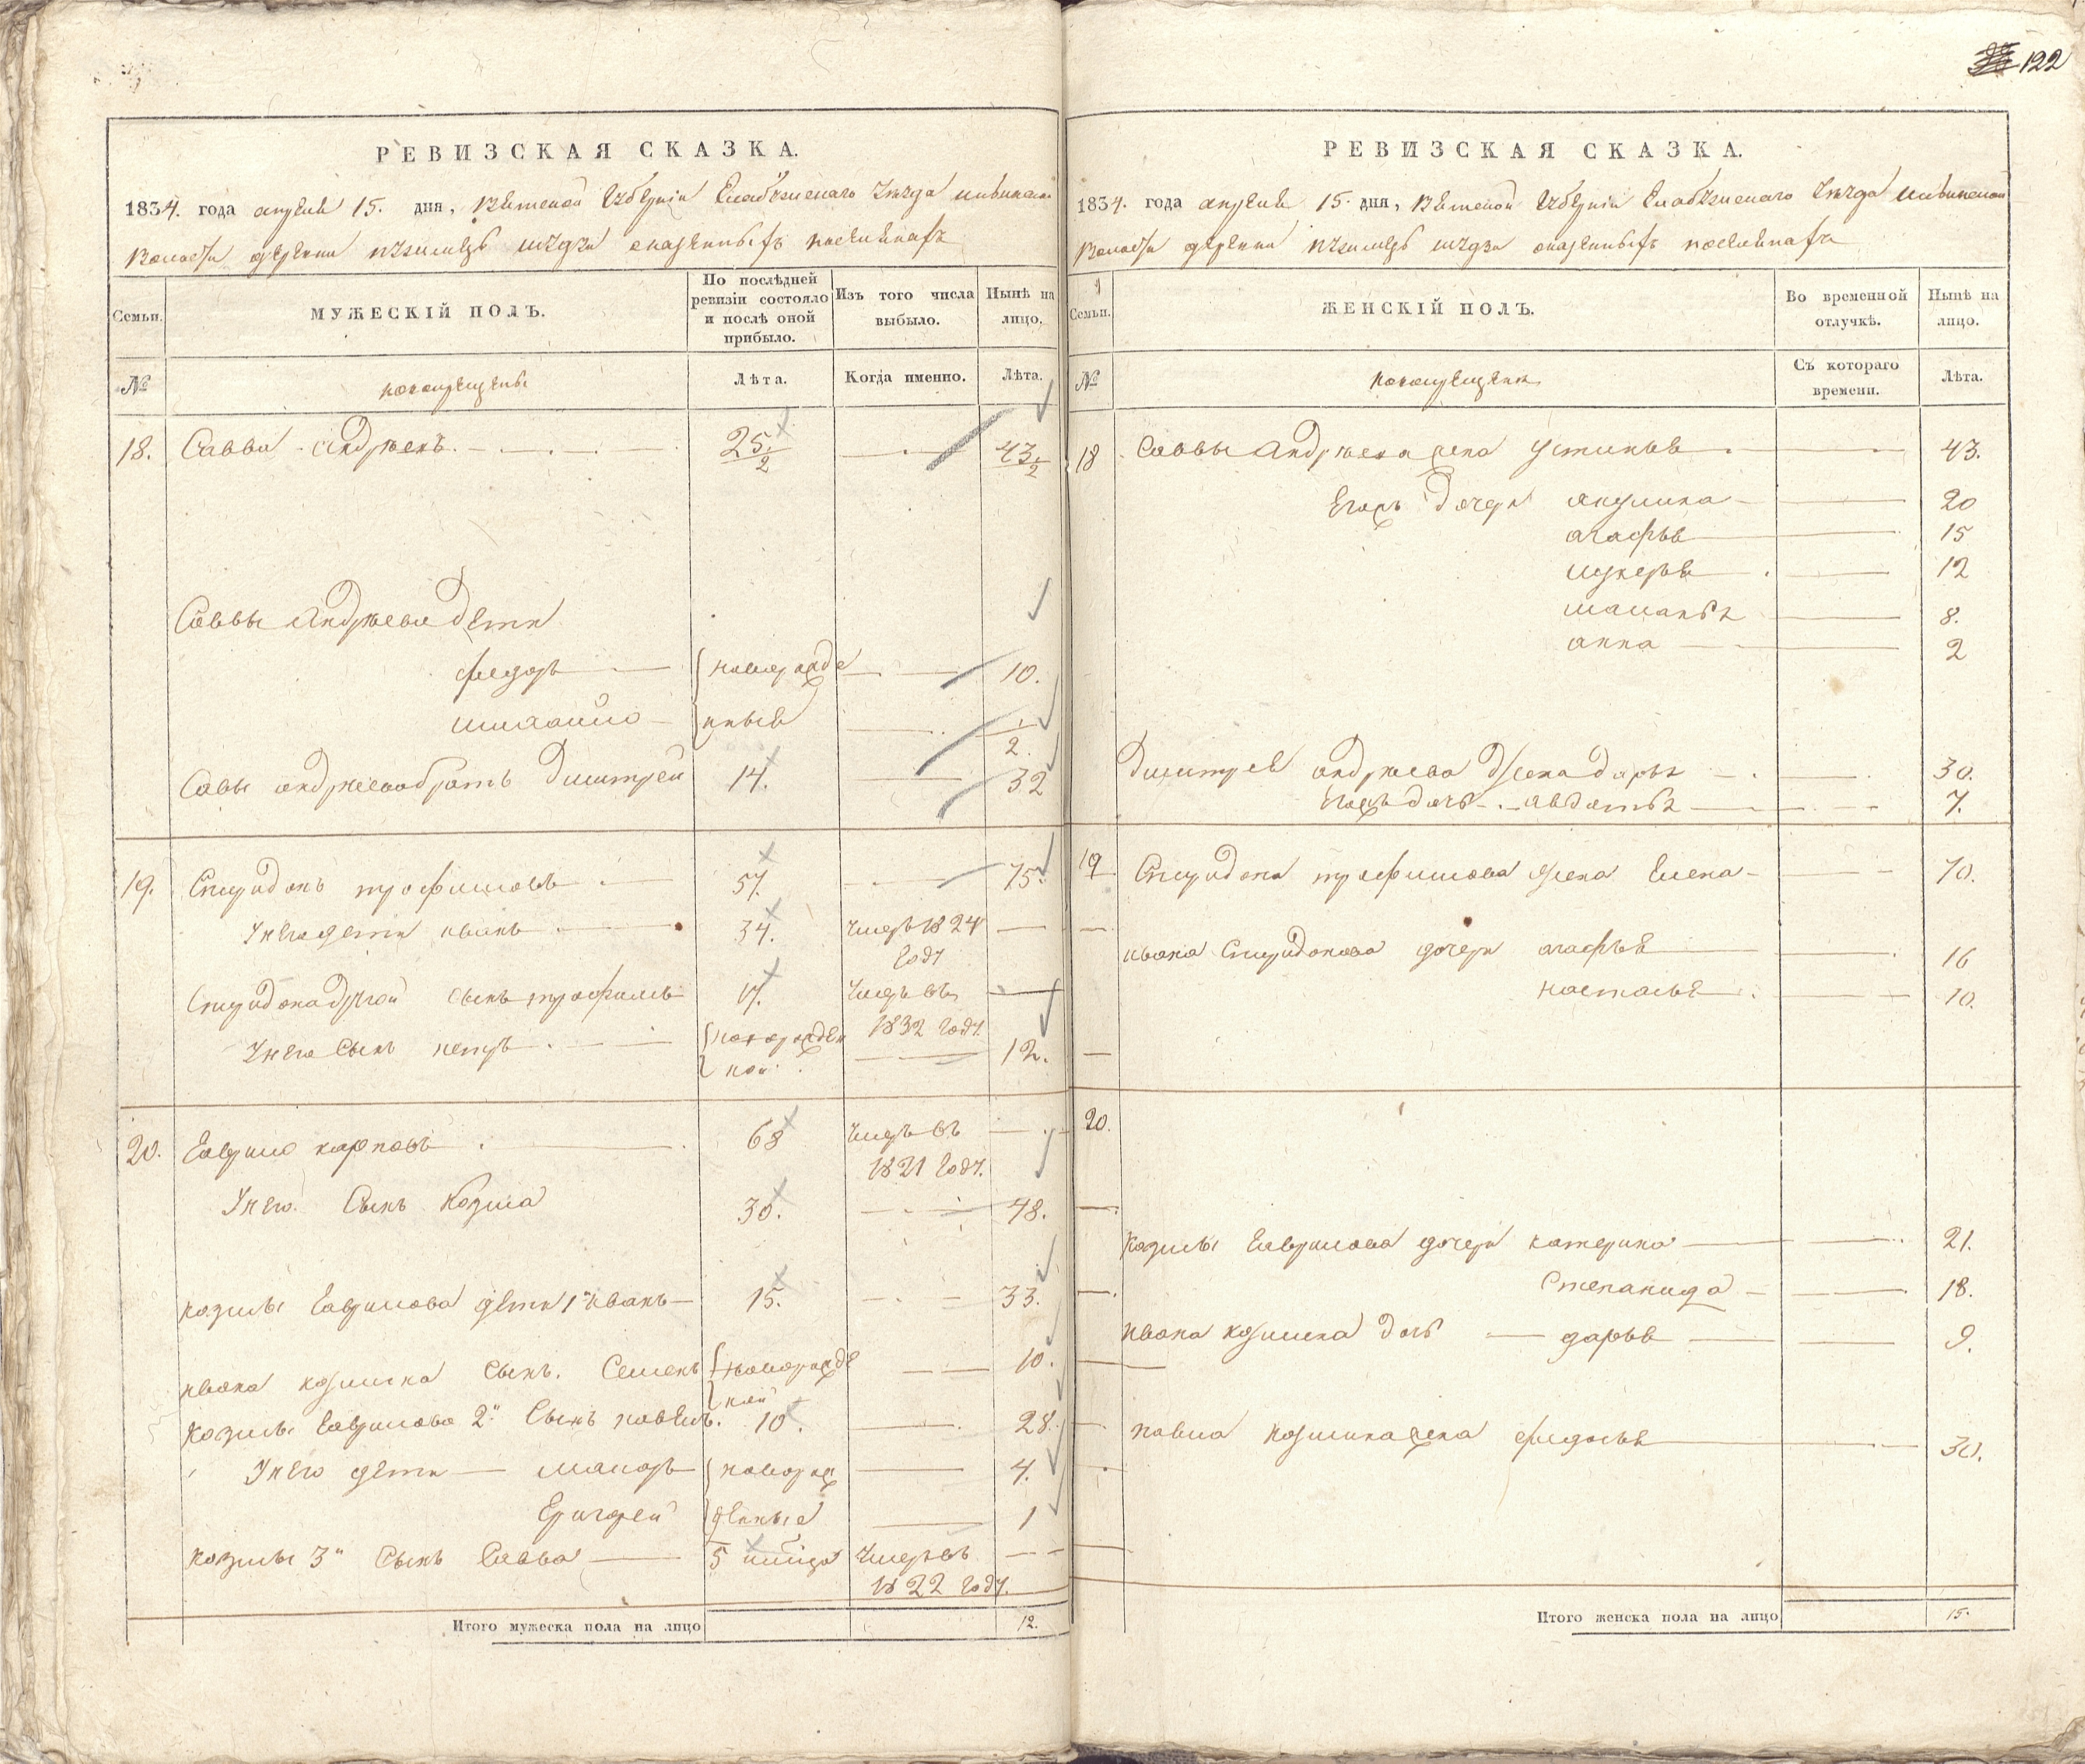 122
РЕВИЗСКАЯ СКАЗКА.
1834. года апреля 15. дня, Вятской Губернiи Елабужскаго Уезда
Волости деревни
Семьи.
МУЖЕСКІЙ ПОЛЪ.
По послѣдней ревизіи состояло и послѣ оной прибыло.
Изъ того числа выбыло.
Нынѣ на лицо.
№
новокрещены
Лѣта.
Когда именно.
Лѣта.
18. Савва Андреевъ 25 1/2 43 1/2
Саввы Андреева дети
федоръ новорожде 10.
нные 1/2
Савы андреева братъ Дмитрей 14. 32
19. Спиридонъ трофимовъ 57. 75.
У него дети иванъ 34. умеръ 1824 году
Спиридона другой сынъ трофимъ 17. умеръ въ 1832 году
У него Сынъ петръ новорожден ной 12.
20. Гаврило карповъ 68 умеръ въ 1821 году.
У него Сынъ Козма 30. 48.
козмы Гаврилова дети 1й иванъ 15. 33.
ивана козмина Сынъ. Семенъ новорожде ной 10.
Козмы Гаврилова 2й Сынъ павелъ. 10. 28.
У него дети новорож 4.
денные 1
козмы 3й Сынъ Савва 5 умеръ въ
1822 году.
Итого мужеска пола на лицо 12.
РЕВИЗСКАЯ СКАЗКА.
1834. года апреля 15. дня, Вятской Губернiи Елабужскаго Уезда
Волости деревни
Семьи.
ЖЕНСКІЙ ПОЛЪ.
Во временной отлучкѣ.
Нынѣ на лицо.
№
новокрещены
Съ котораго времени.
Лѣта.
18 Саввы Андреева жена Устинья 43.
Егожъ дочери акулина 20
агафья 15
лукерья 12
маланья 8.
анна 2
Дмитрея андреева жена дарья 30.
Егожъ дочь авдотья 7.
19 Спиридона трофимова жена Елена 70.
ивана Спиридонова дочери агафья 16
настасья 10.
20.
Козмы Гаврилова дочери катерина 21.
Степанида 18.
ивана козмина дочь дарья 9.
павла козмина жена федосья 30.
Итого женска пола на лицо 15.